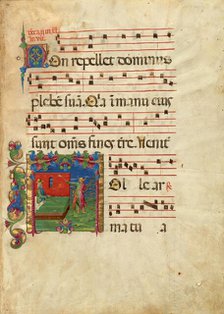 on repellet dominus
plebē suā. Q̄a ī manu eius
sunt om̄s fines tre. Venite
ol le ar
ma tu a